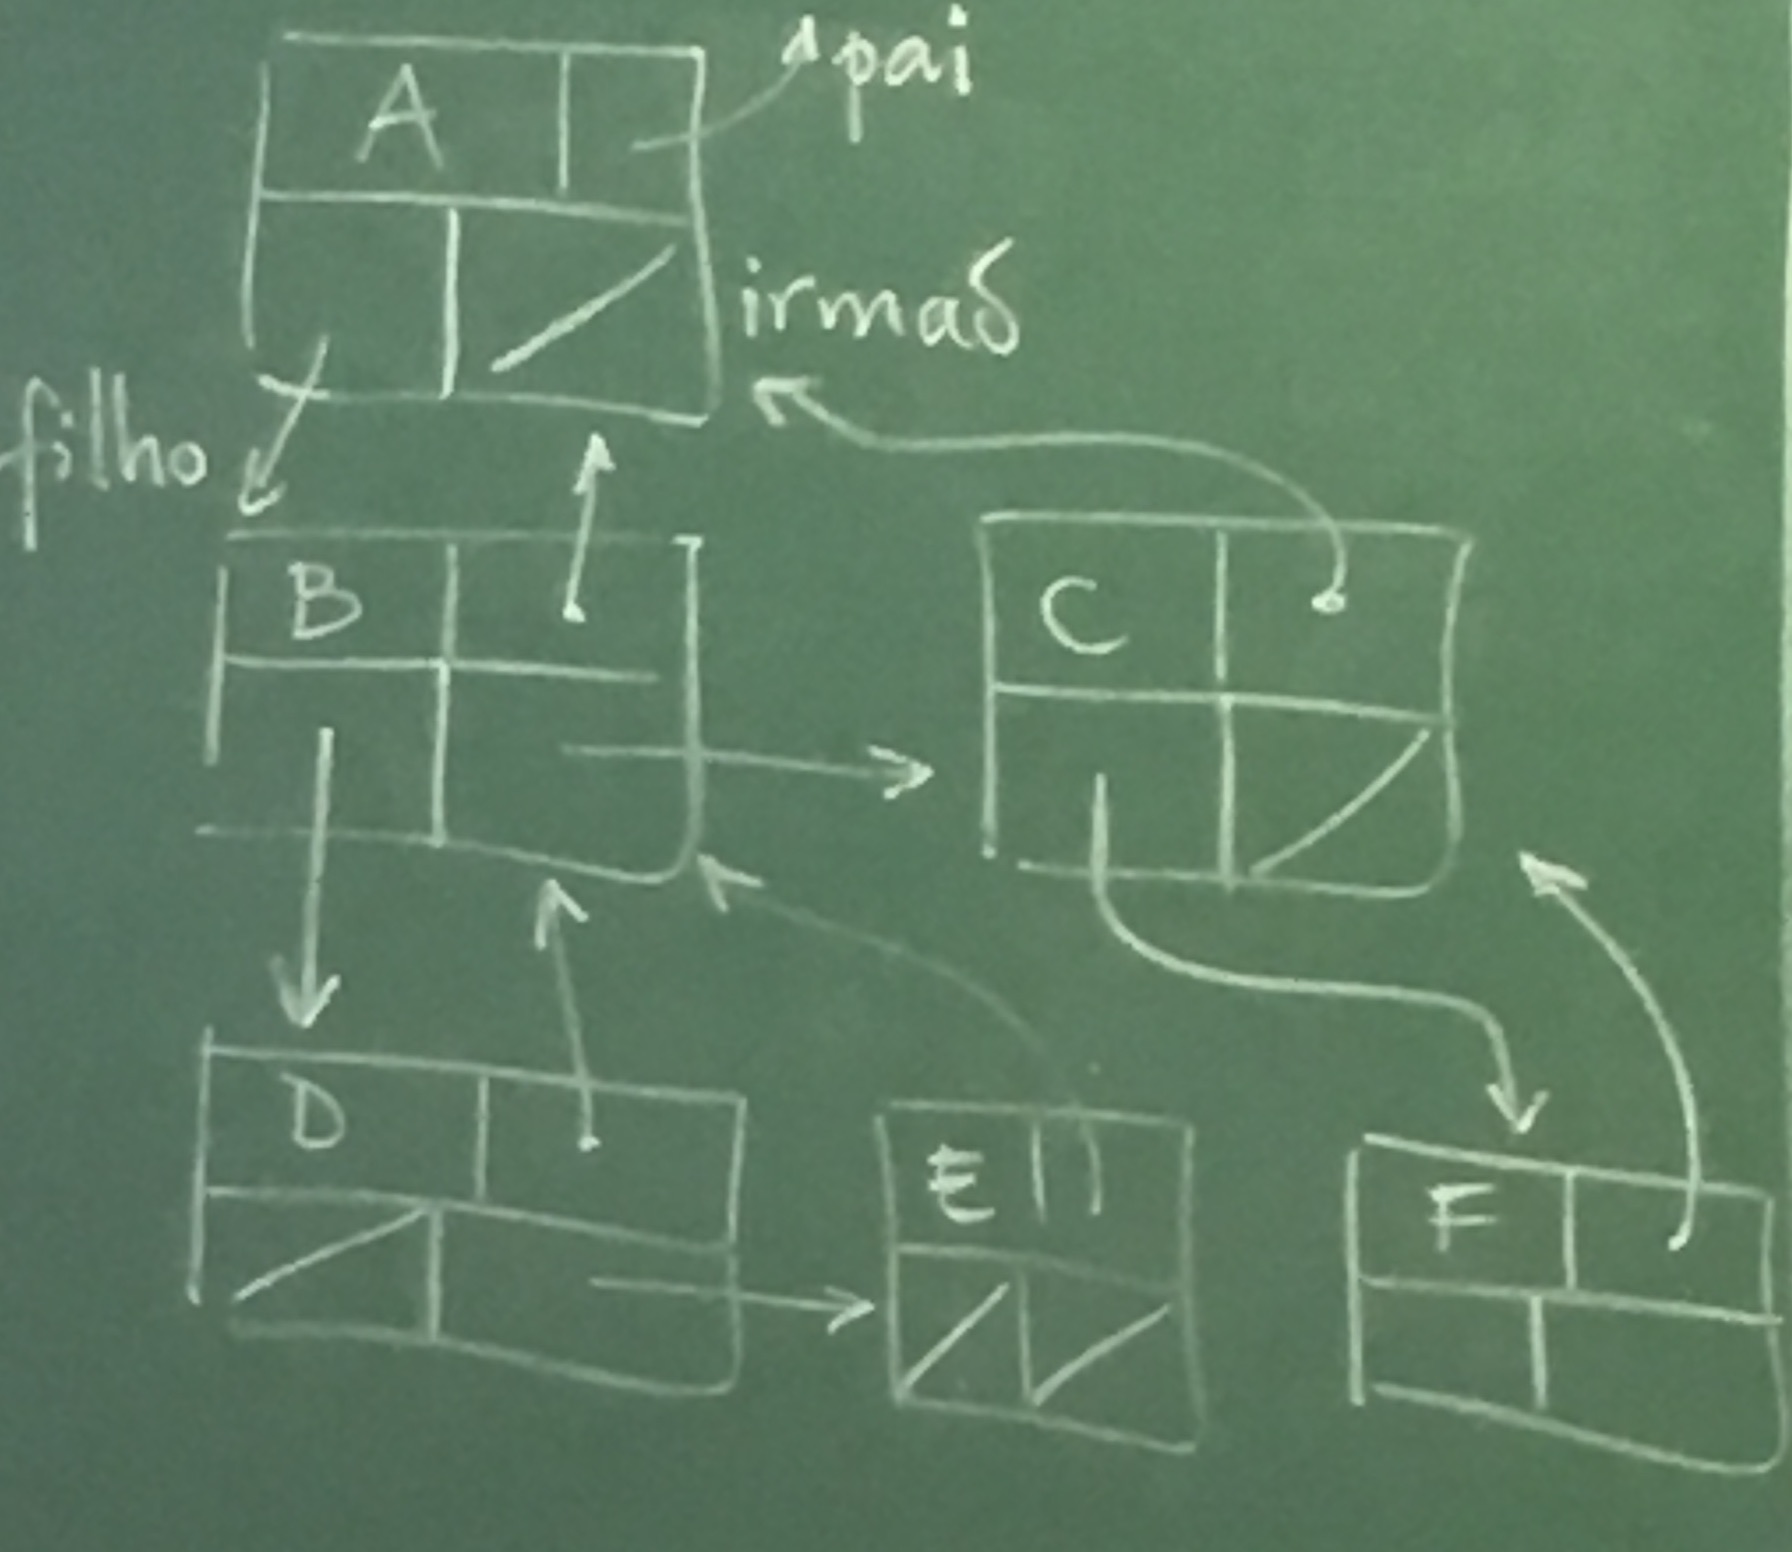 A
pai
irmaõ
filho
B
C
D
E
F